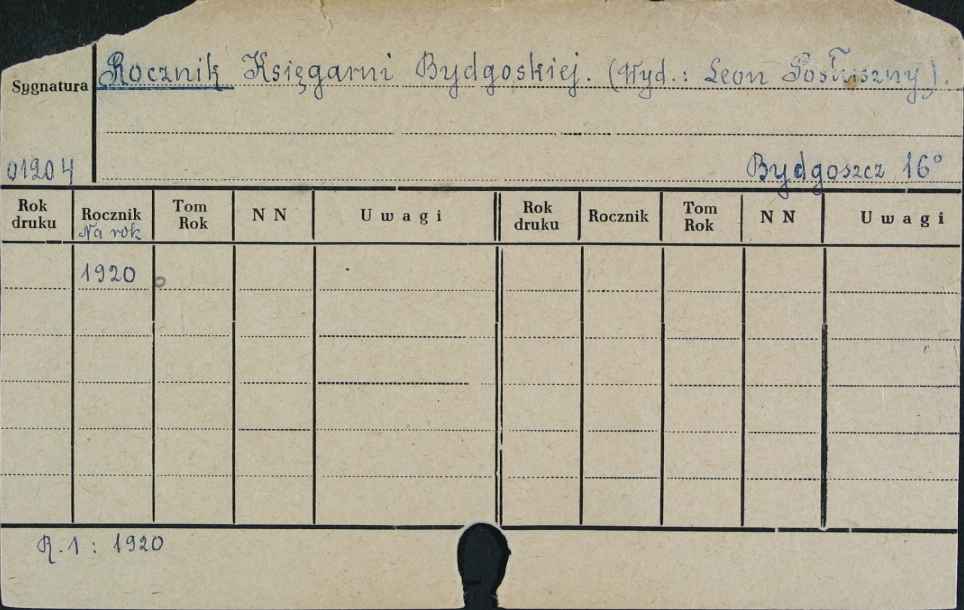 Rocznik Księgarni Bydgoskiej. (Wyd.: Leon Posłuszny).
Sygnatura
01204
Bydgoszcz 16°
Rok druku Rocznik Na rok Tom Rok N N Uwagi Rok druku Rocznik Tom Rok N N Uwagi
1920
R.1: 1920